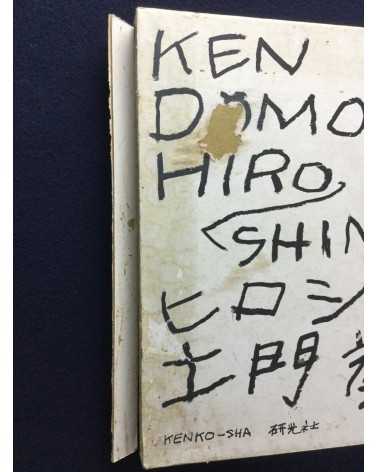 KEN
DOMO
HIRO
SHIM
ヒロシ
土門
KENKO-SHA 研光社